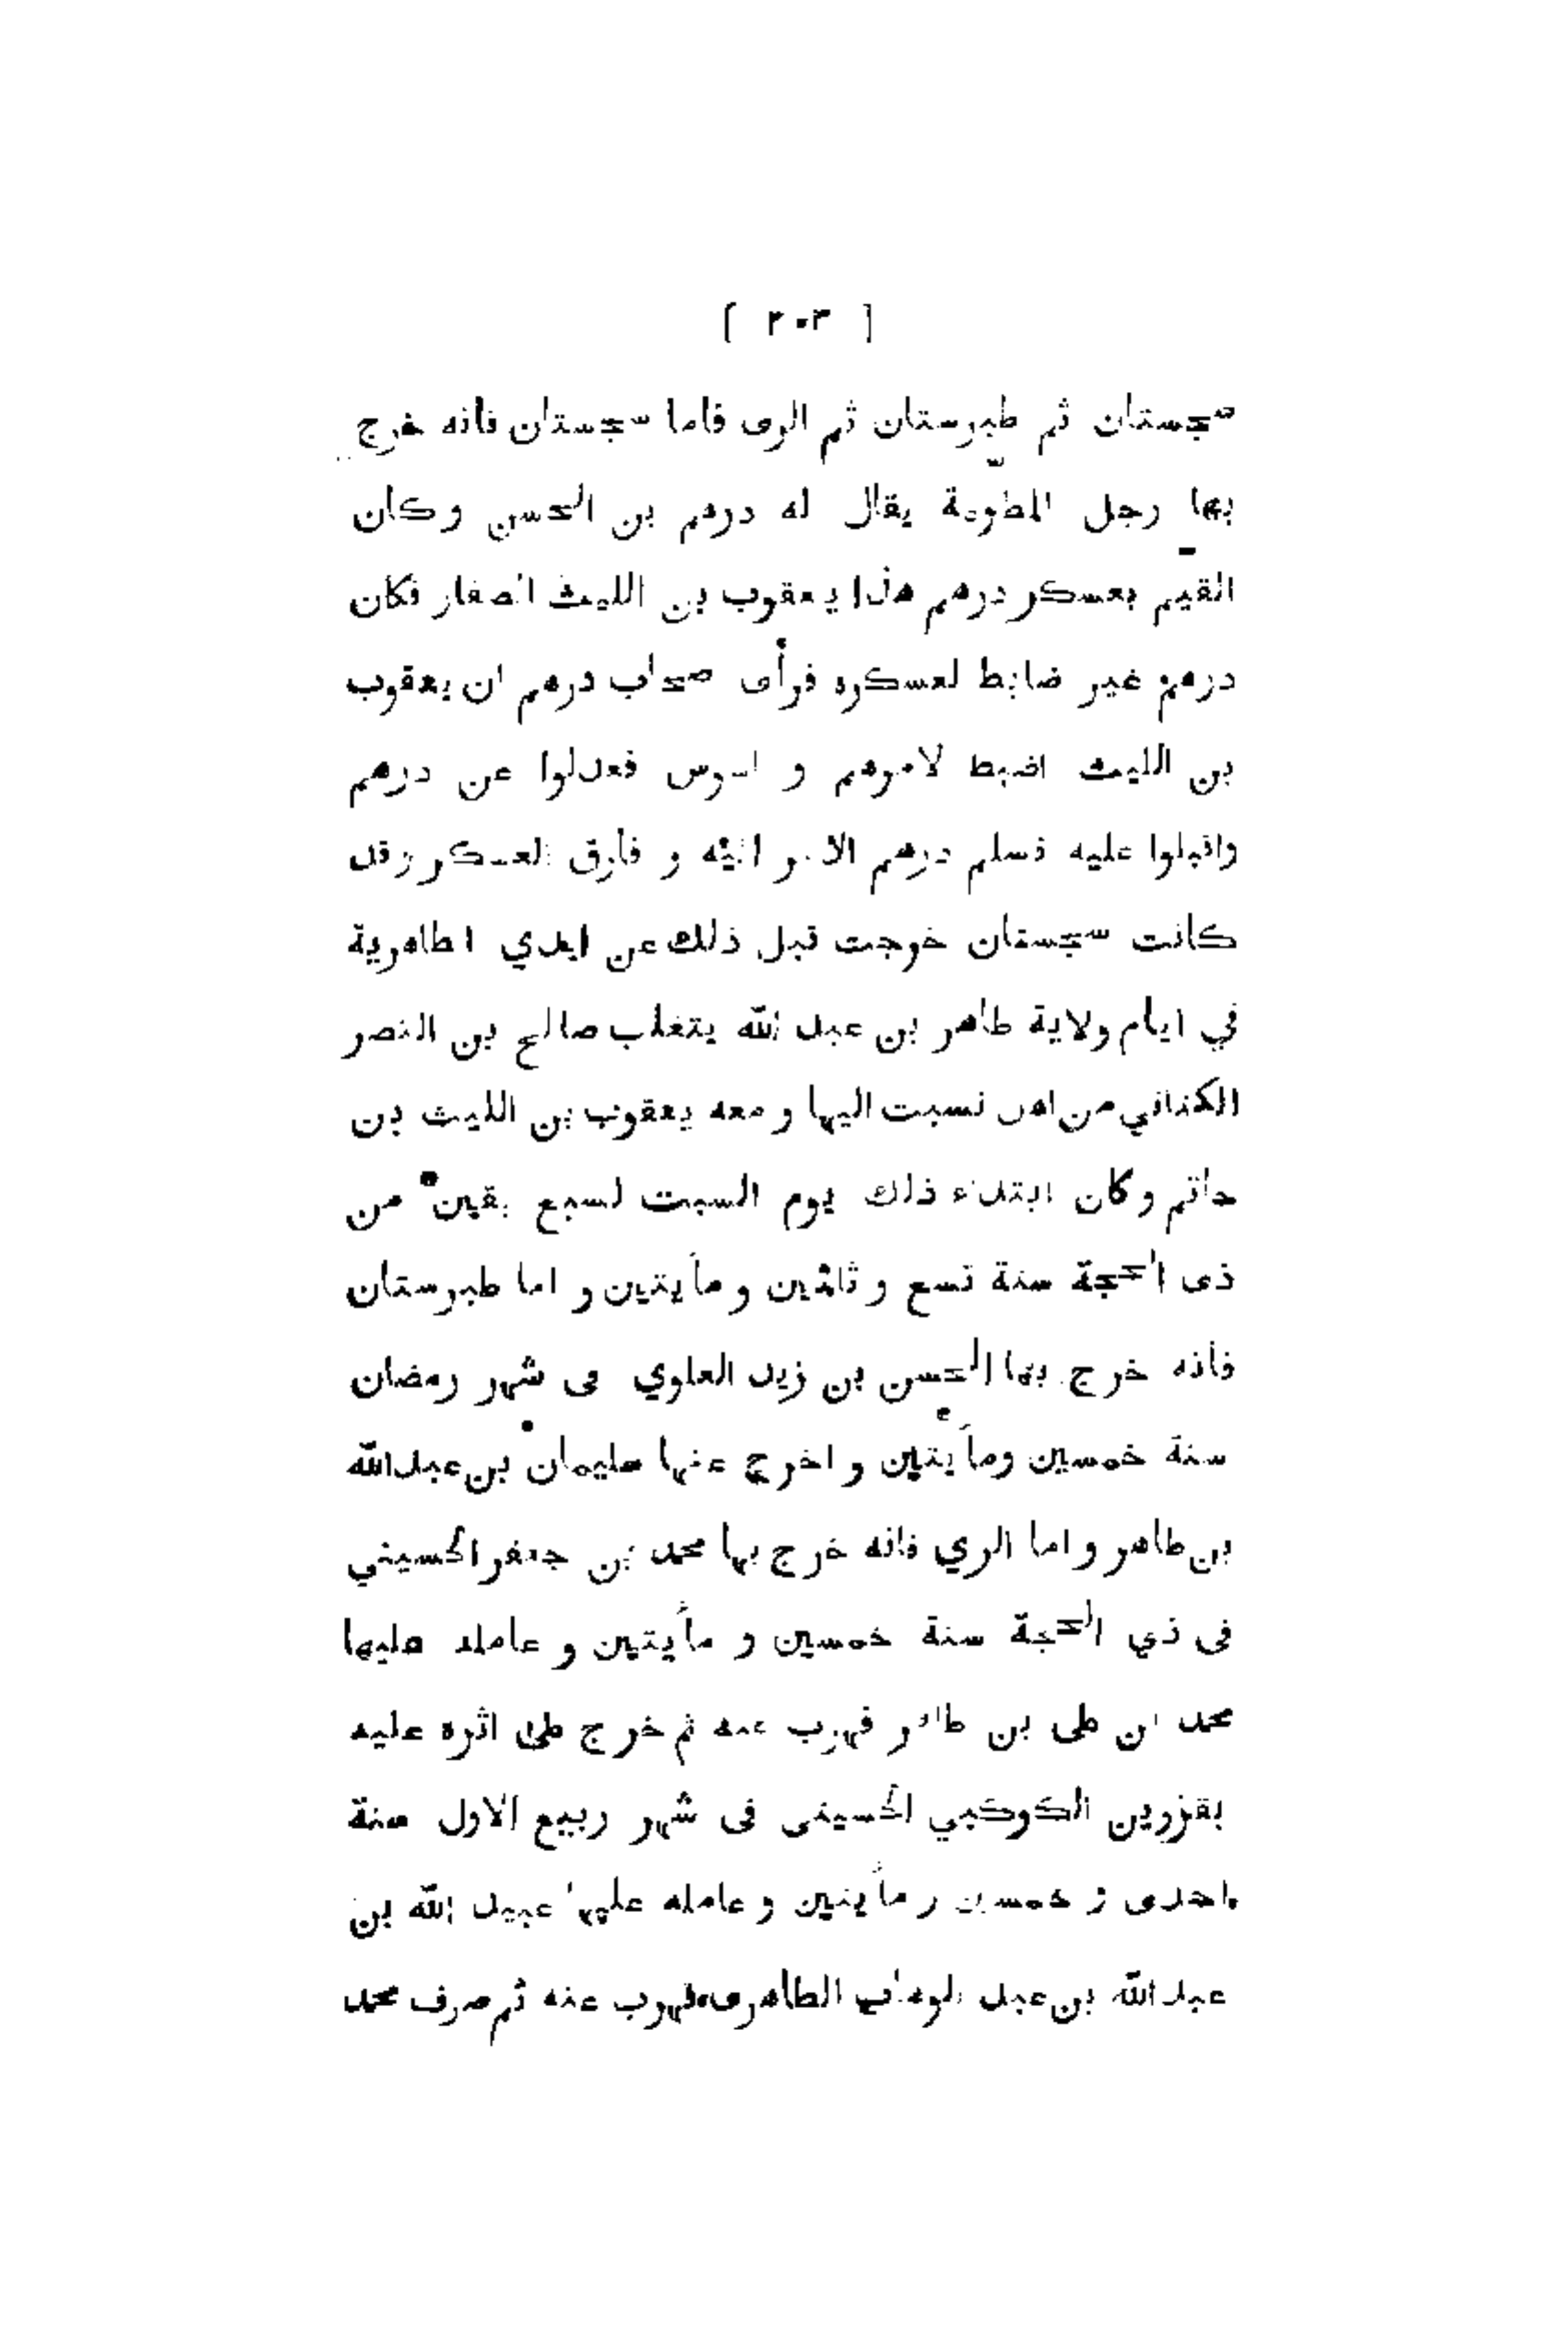 [ ٢٠٣ ]
سجستان ثم طبرستان ثم الرى فاما سجستان فانه خرج
بها رجل المطوعة يقال له درهم بن الحسن وكان
القيم بعسكر درهم هذا يعقوب بن الليث الصفار فكان
درهم غير ضابط لعسكره فرأى صحاب درهم ان يعقوب
بن الليث اضبط لامرهم و اسوس فعدلوا عن درهم
واقبلوا عليه فسلم درهم الامر اليه و فارق العسكر وقد
كانت سجستان خرجت قبل ذلك عن ايدي الطاهرية
في ايام ولاية طاهر بن عبد الله يتغلب صالح بن النصر
الكناني من اهل نسبت اليها و معه يعقوب بن الليث بن
حاتم وكان ابتداء ذلك يوم السبت لسبع بقين من
ذى الحجة سنة تسع و ثلثين و مأيتين و اما طبرستان
فانه خرج بها الحسن بن زيد العلوي فى شهر رمضان
سنة خمسين ومأيتين و اخرج عنها سليمان بن عبدالله
بن طاهر و اما الري فانه خرج بها محمد بن جعفر الحسيني
فى ذي الحجة سنة خمسين و مأيتين و عامله عليها
محمد بن على بن طاهر فهرب عنه ثم خرج على اثره عليه
بقزوين الكوكبي الحسينى فى شهر ربيع الاول سنة
احدى و خمسين و مأيتين و عامله عليها عبيد الله بن
عبدالله بن عبد الوهاب الطاهرى فهرب عنه ثم صرف محمد